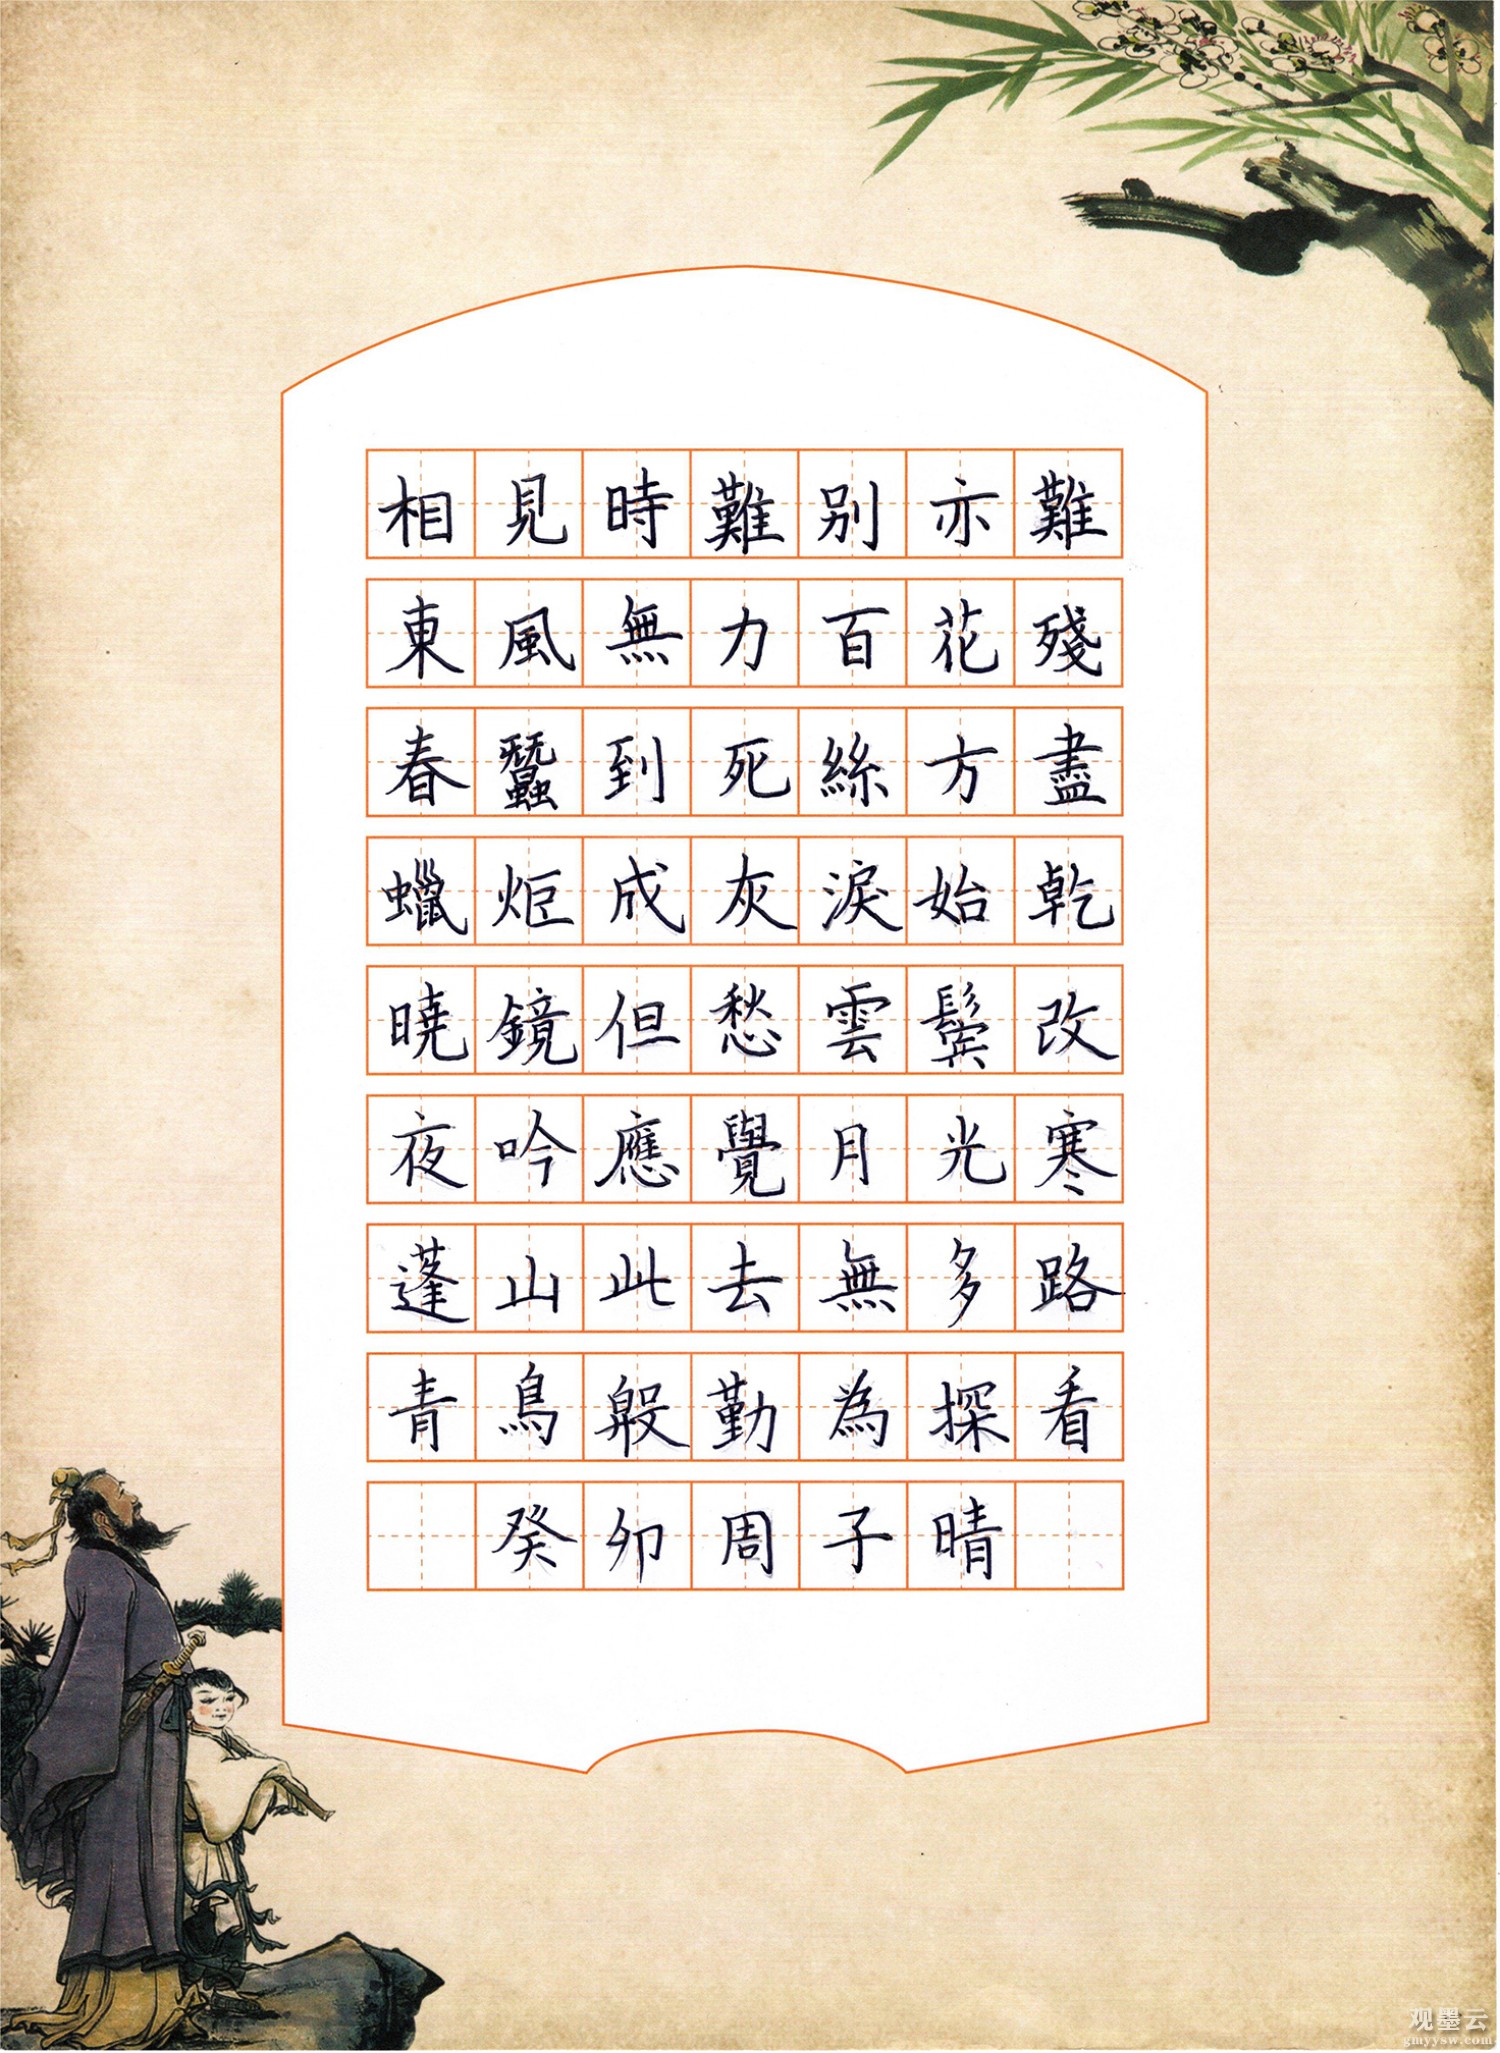 相見時難别亦難
東風無力百花殘
春蠶到死絲方盡
蠟炬成灰淚始乾
曉鏡但愁雲鬢改
夜吟應覺月光寒
蓬山此去無多路
青鳥殷勤為探看
癸卯周子晴
观墨云
gmyysw.com